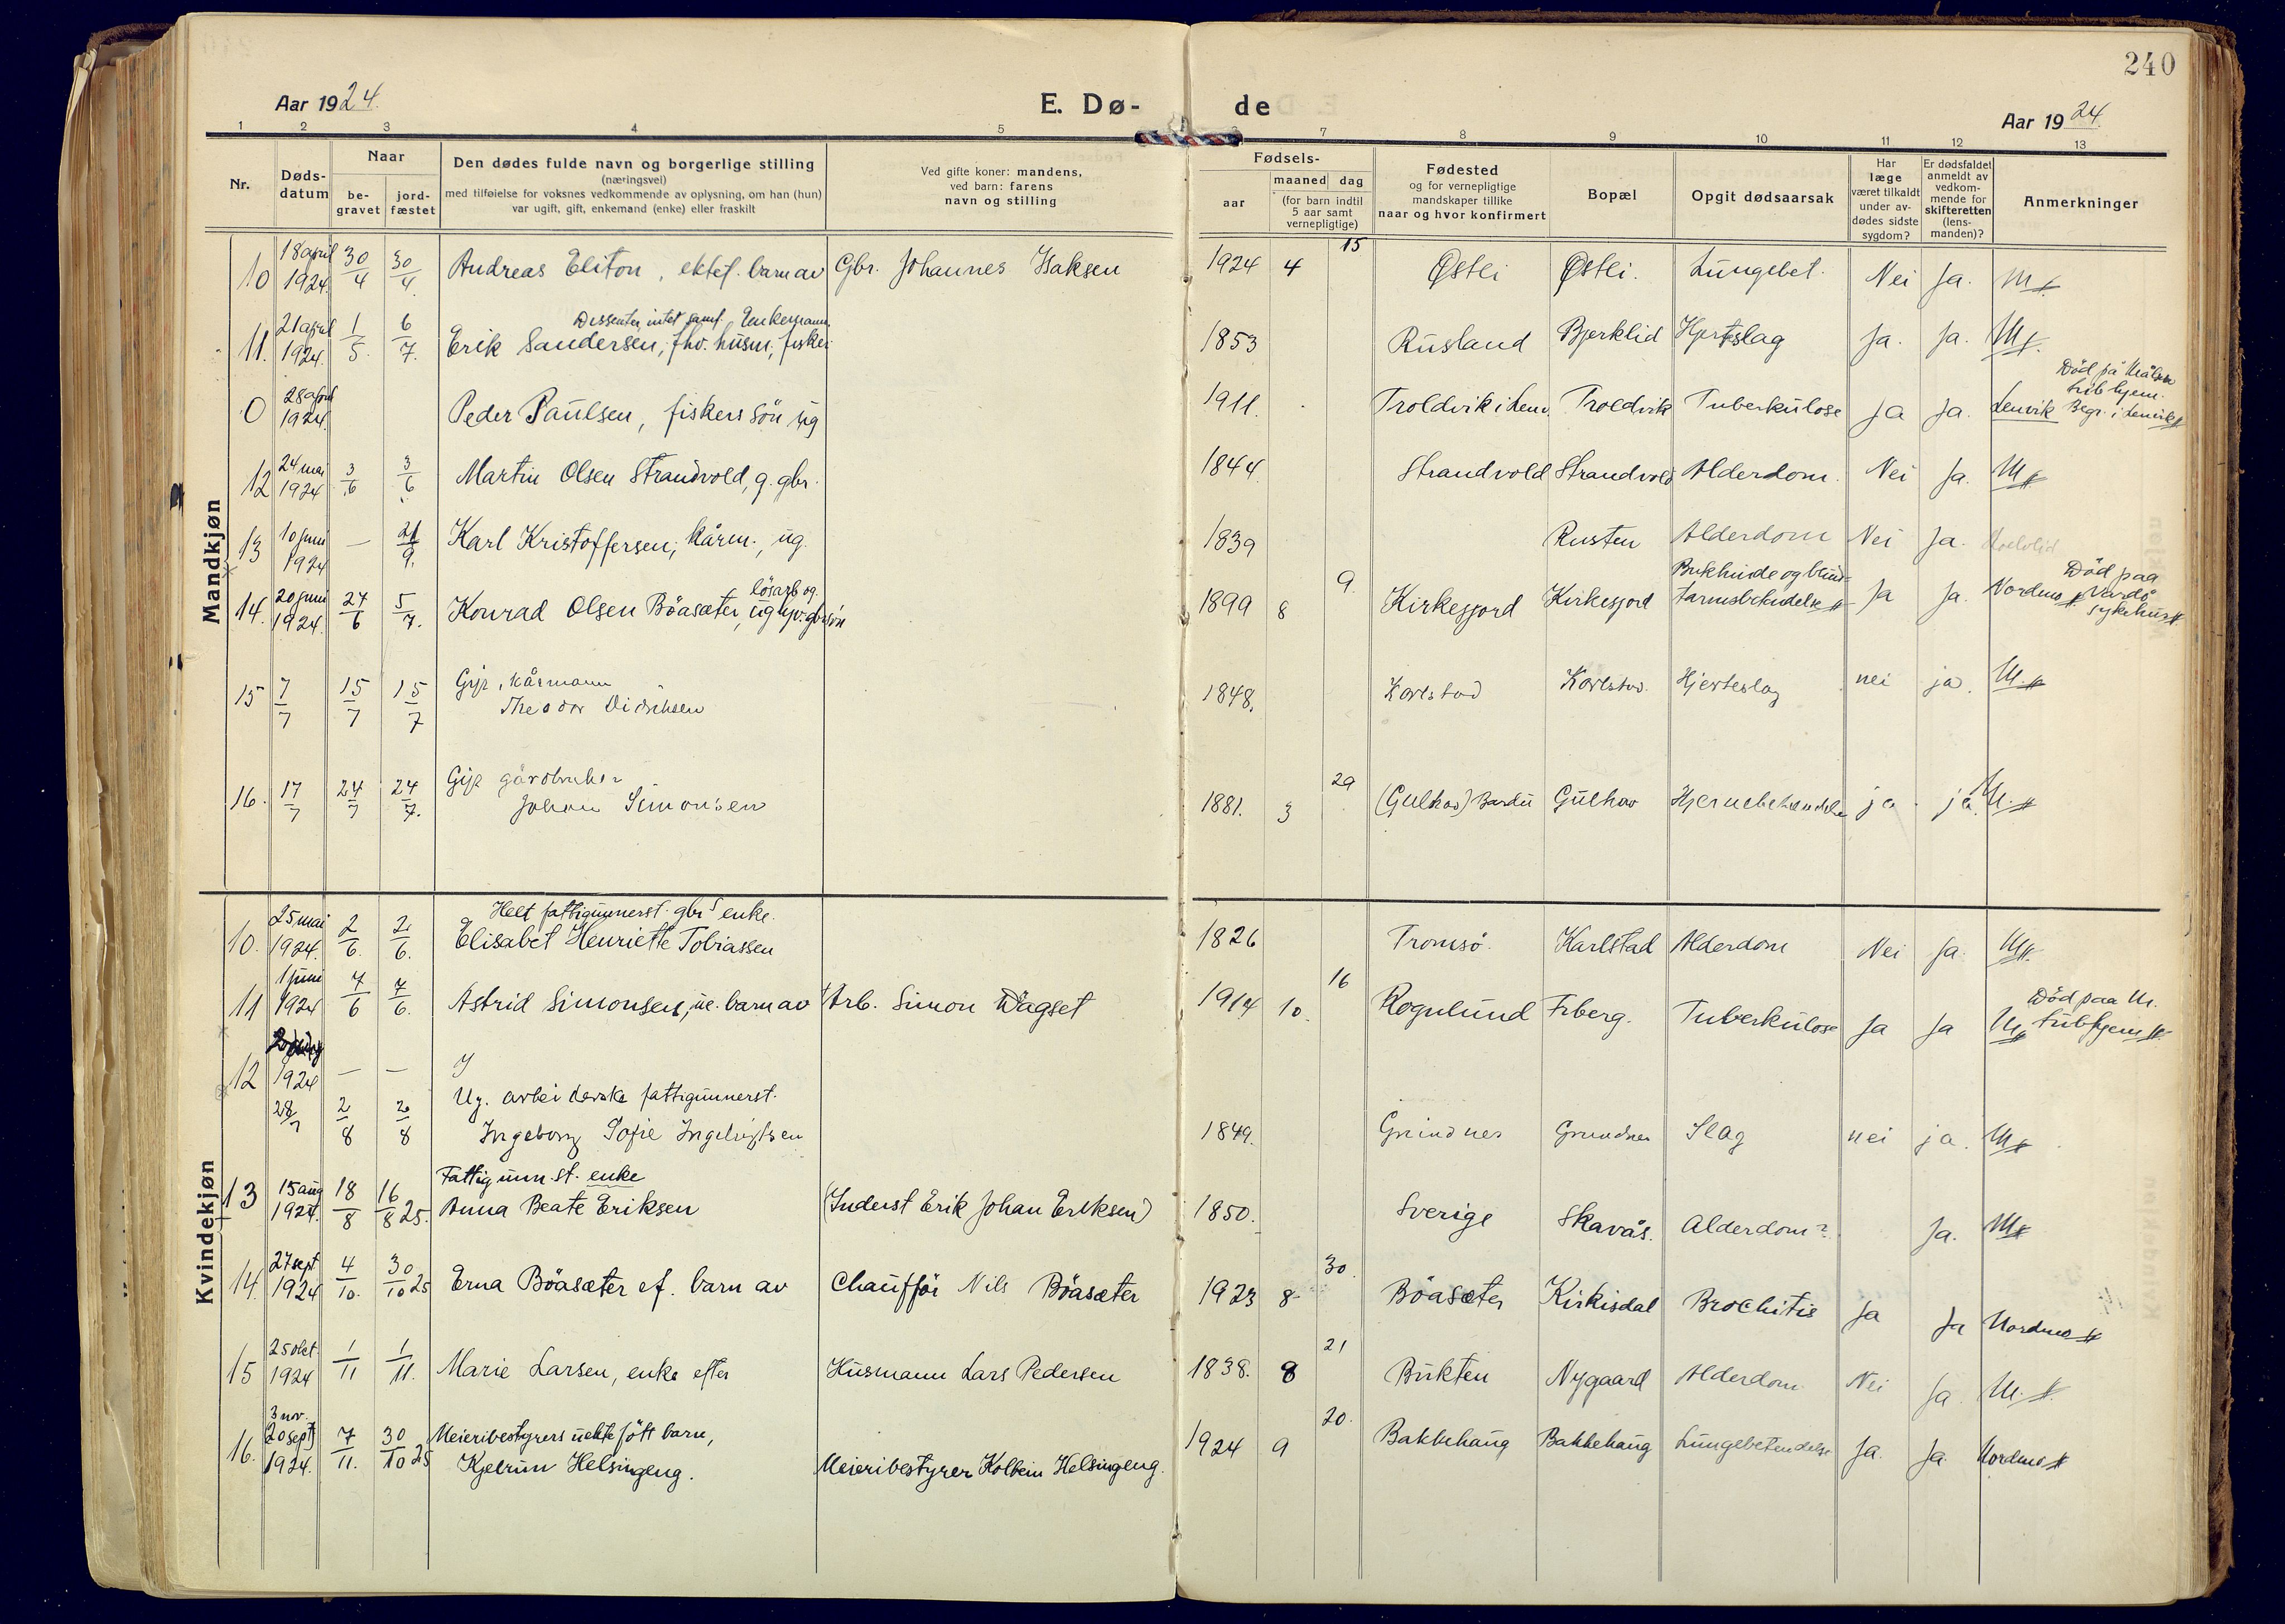 240
Aar 1924.
E. Dø-
de
Aar 1924
1 2 3 4 5 7 8 9 10 11 12 13
Nr.
Døds-
datum
Naar
be-
gravet
jord-
fæstet
Den dødes fulde navn og borgerlige stilling
(næringsvei)
med tilføielse for voksnes vedkommende av oplysning, om han (hun)
var ugift, gift, enkemand (enke) eller fraskilt
Ved gifte koner: mandens,
ved barn: farens
navn og stilling
Fødsels-
aar
maaned dag
(for barn indtil
5 aar samt
vernepligtige)
Fødested
og for vernepligtige
mandskaper tillike
naar og hvor konfirmert
Bopæl
Opgit dødsaarsak
Har
læge
været tilkaldt
under av-
dødes sidste
sygdom?
Er dødsfaldet
anmeldt av
vedkom-
mende for
skifteretten
(lens-
manden)?
Anmerkninger
Mandkjøn
10 18 april 1924. 30/4 30/4. Andreas Eliton, ektef. barn av Gbr. Johannes Isaksen 1924 4 15 Østli Østli. Lungebet. Nei Ja. M
Dissenter, intet samf. Enkemann
11. 21 april 1924. 1/5. 6/7. Erik Sandersen, fhv. husm., fisker 1853 Rusland Bjerklid Hjerteslag Ja. Ja. M
Død på Målselv
tub hjem.
0 28 april 1924. Peder Paulsen, fiskers sön ug 1911. Troldvik i Lenv. Troldvik Tuberkulose Ja Ja. Lenvik Begr. i Lenvik
12 24 mai 1924 3/6 3/6 Martin Olsen Strandvold, g. gbr. 1844. Strandvold Strandvold Alderdom. Nei Ja. M
13 10 juni 1924 — 21/9. Karl Kristoffersen, kårm., ug. 1839 Rusten Alderdom Nei Ja.
lösarb og
Død paa
14. 20 juni 1924. 24/6 5/7. Konrad Olsen Böasæter, ug 1899 8 9. Kirkesjord Kirkesjord Bukhinde og blind-
tarmsbetendelse Ja Ja. Nordmo Vardö
sykehus
Gift, kårmann
15 7/7 15/7 15/7 Theodor Didriksen 1848. Karlstad Karlstad. Hjerteslag nei ja. M.
Gift gårdbruker
16. 17/7 24/7 24/7. Johan Simonsen 1881. 3 29 (Gulhav) Bardu Gulhav Hjernebetændelse ja ja. M.
Kvindekjøn
Helt fattigunnerst. gbrs enke.
10. 25 mai 1924. 2/6. 2/6. Elisabet Henriette Tobiassen 1826 Tromsö. Karlstad Alderdom Nei Ja. M
11 1 juni 1924 7/6 7/6. Astrid Simonsen, ue. barn av Arb. Simon Dagset 1914 10. 16 Rognlund Frberg. Tuberkulose Ja Ja M Død paa M.
tubhjem
12 1924 — —
Ug. arbeiderske fattigunnerst.
28/7 2/8 2/8 Ingeborg Sofie Ingebrigtsen 1849. Grundnes Grundnes Slag nei ja. M
Fattigunn.st. enke
13 15 aug 1924. 18/8 16/8 25. Anna Beate Eriksen (Inderst Erik Johan Eriksen) 1850. Sverige Skavås. Alderdom? Ja. M
14. 27 sept 1924 4/10. 30/10 25 Erna Böasæter ef. barn av Chaufför Nils Böasæter 1923 8 30. Böasæter Kirkisdal Brochitis Ja Ja Nordmo
15 25 okt. 1924 1/11 1/11. Marie Larsen, enke efter Husmann Lars Pedersen 1838. 8 21 Bukten Nygaard Alderdom Nei Ja. M.
3 nov.
16. (20 sept) 1924. 7/11. 30/10 25 Meieribestyrers uekte födt barn,
Kjelrun Helsingeng. Meieribestyrer Kolbein Helsingeng. 1924 9 20. Bakkehaug Bakkehaug Lungebetendelse Ja. Ja. Nordmo